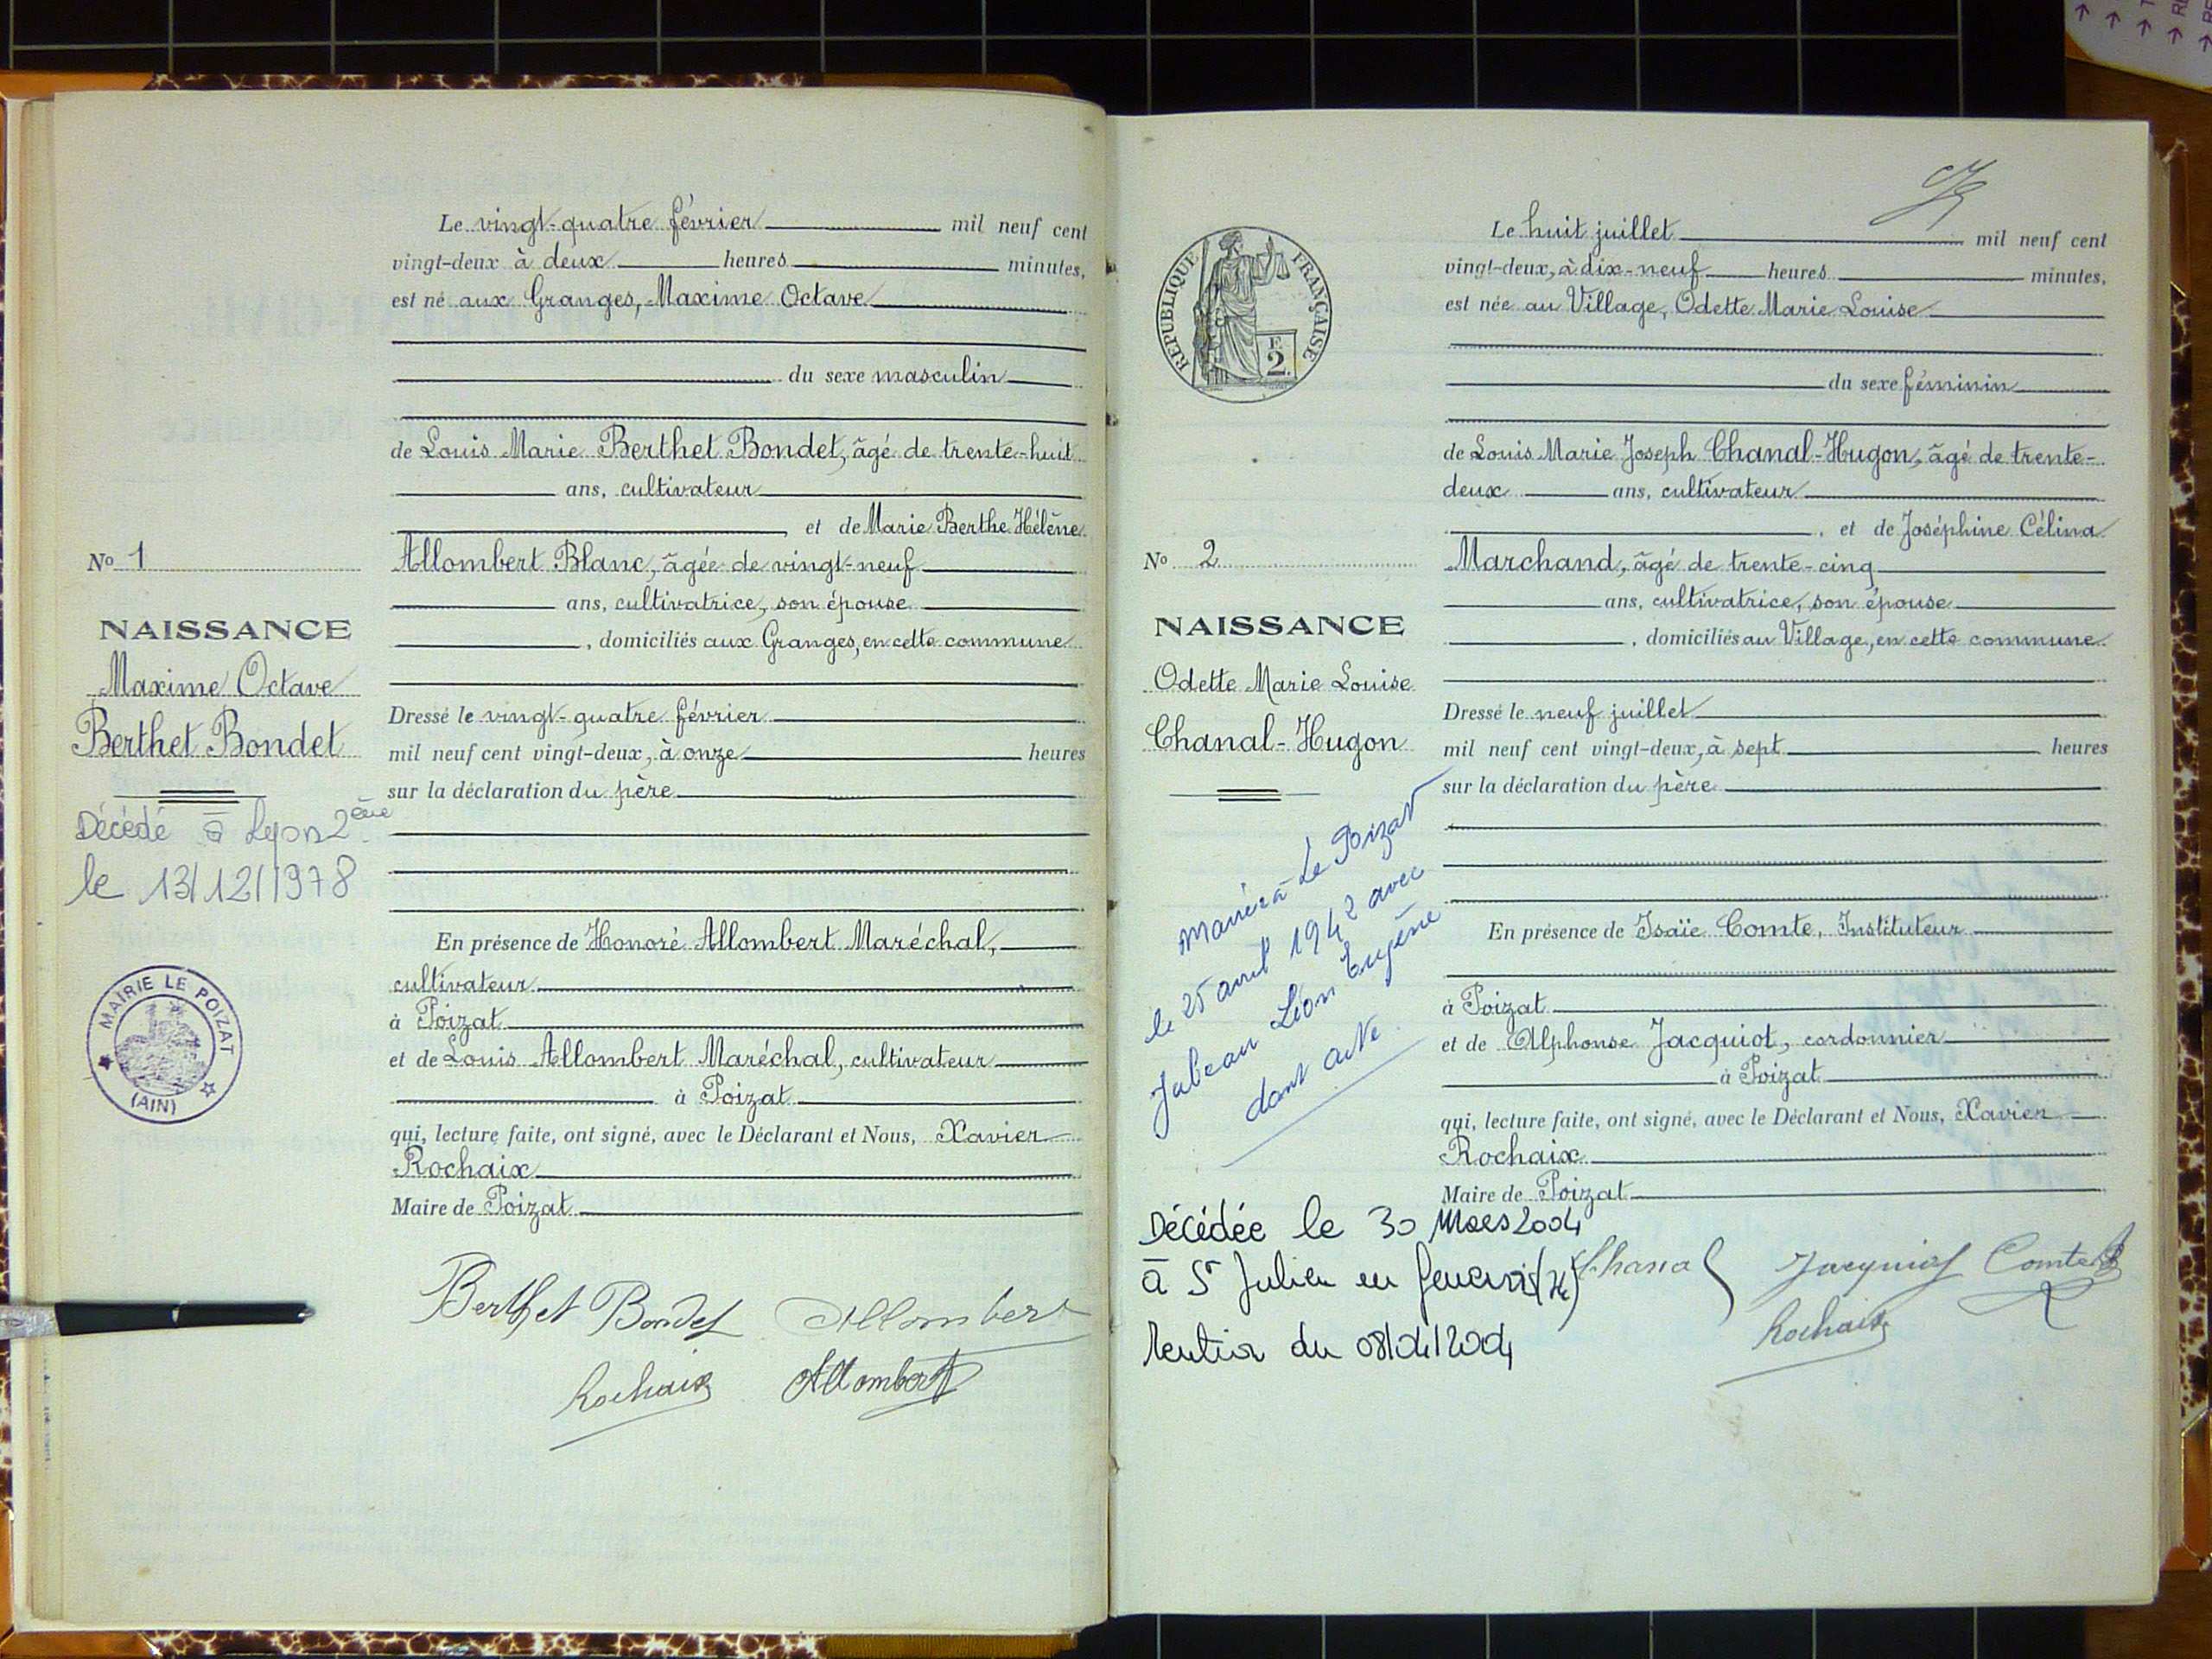 Le vingt-quatre février mil neuf cent
vingt-deux à deux heures minutes,
est né aux Granges, Maxime Octave
du sexe masculin
de Louis Marie Berthet Bondet, âgé de trente-huit
ans, cultivateur
et de Marie Berthe Hélène
No 1
Allombert Blanc, âgée de vingt-neuf
ans, cultivatrice, son épouse
NAISSANCE
, domiciliés aux Granges, en cette commune
Maxime Octave
Berthet Bondet
Dressé le vingt-quatre février
mil neuf cent vingt-deux, à onze heures
sur la déclaration du père
Décédé à Lyon 2ème
le 13/12/1978
En présence de Honoré Allombert Maréchal,
cultivateur
à Poizat
et de Louis Allombert Maréchal, cultivateur
à Poizat
MAIRIE LE POIZAT
(AIN)
qui, lecture faite, ont signé, avec le Déclarant et Nous, Xavier
Rochaix
Maire de Poizat
Berthet Bondet Allombert
Rochaix Allombert
REPUBLIQUE FRANÇAISE
2
F.
Le huit juillet mil neuf cent
vingt-deux, à dix-neuf heures minutes,
est née au Village, Odette Marie Louise
du sexe féminin
de Louis Marie Joseph Chanal-Hugon, âgé de trente-
deux ans, cultivateur
, et de Joséphine Célina
No 2
Marchand, âgé de trente-cinq
ans, cultivatrice, son épouse
NAISSANCE
, domiciliés au Village, en cette commune
Odette Marie Louise
Chanal-Hugon
Dressé le neuf juillet
mil neuf cent vingt-deux, à sept heures
sur la déclaration du père
Mariée à Le Poizat
le 25 avril 1942 avec
Léon Eugène
dont acte
En présence de Isaïe Comte, Instituteur
à Poizat
et de Alphonse Jacquiot, cordonnier
à Poizat
qui, lecture faite, ont signé, avec le Déclarant et Nous, Xavier
Rochaix
Maire de Poizat
Décédée le 30 Mars 2004
à St Julien en Genevois (74)
Mention du 08/04/2004
Chanal Jacquiot Comte
Rochaix